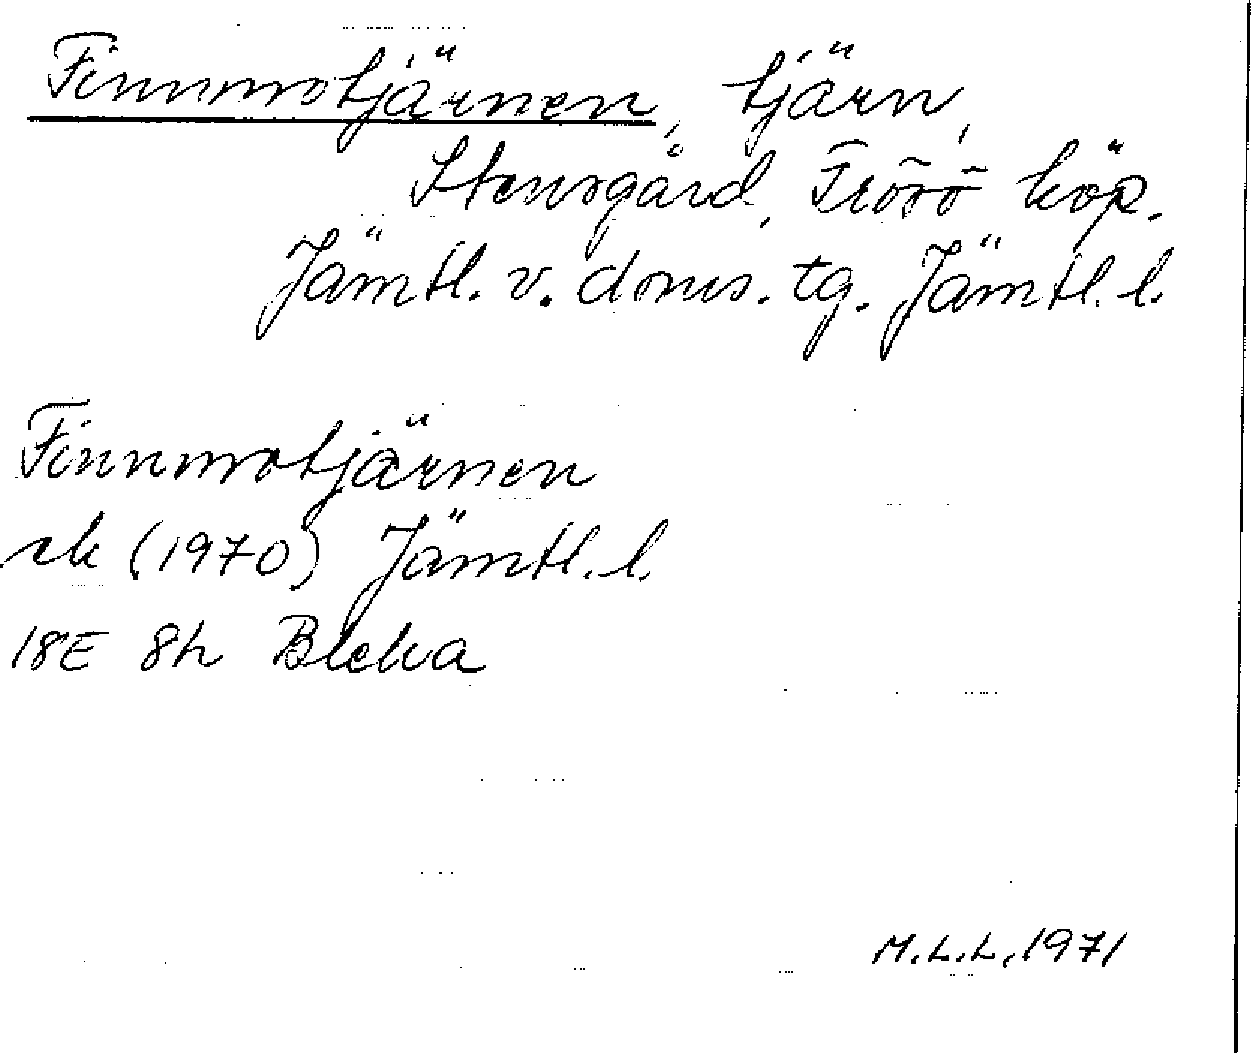 Finnmotjärnen, tjärn,
Stensgård, Frösö köp.
Jämtl. v. doms. tg. Jämtl. l.
Finnmotjärnen
ek (1970) Jämtl. l.
18E 8h Bleka
M.L.L, 1971